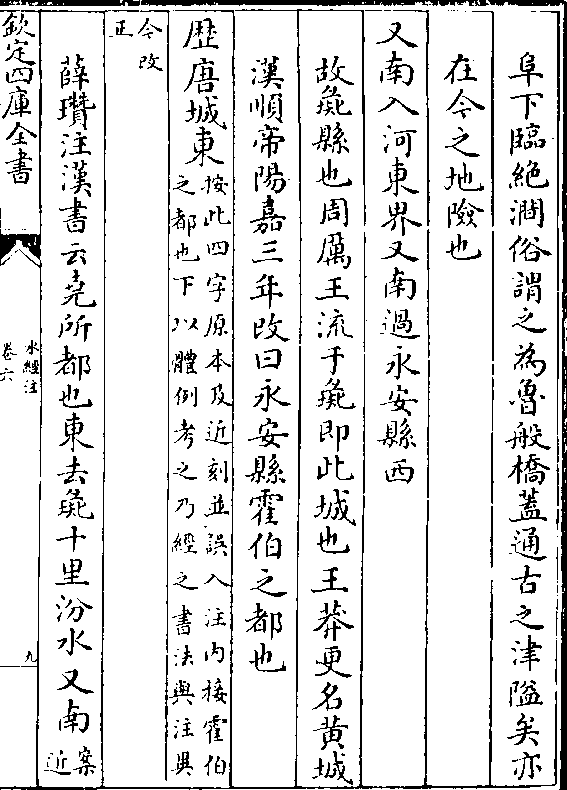 阜下臨絶澗俗謂之為魯般橋蓋通古之津隘矣亦
在今之地險也
又南入河東界又南過永安縣西
故彘縣也周厲王流于彘即此城也王莽更名黄城
漢順帝陽嘉三年改曰永安縣霍伯之都也
歴唐城東按此四字原本及近刻並誤入注内接霍伯
之都也下以體例考之乃經之書法與注異
今改
正
薛瓚注漢書云堯所都也東去彘十里汾水又南案
近
欽定四庫全書
水經注
卷六
九